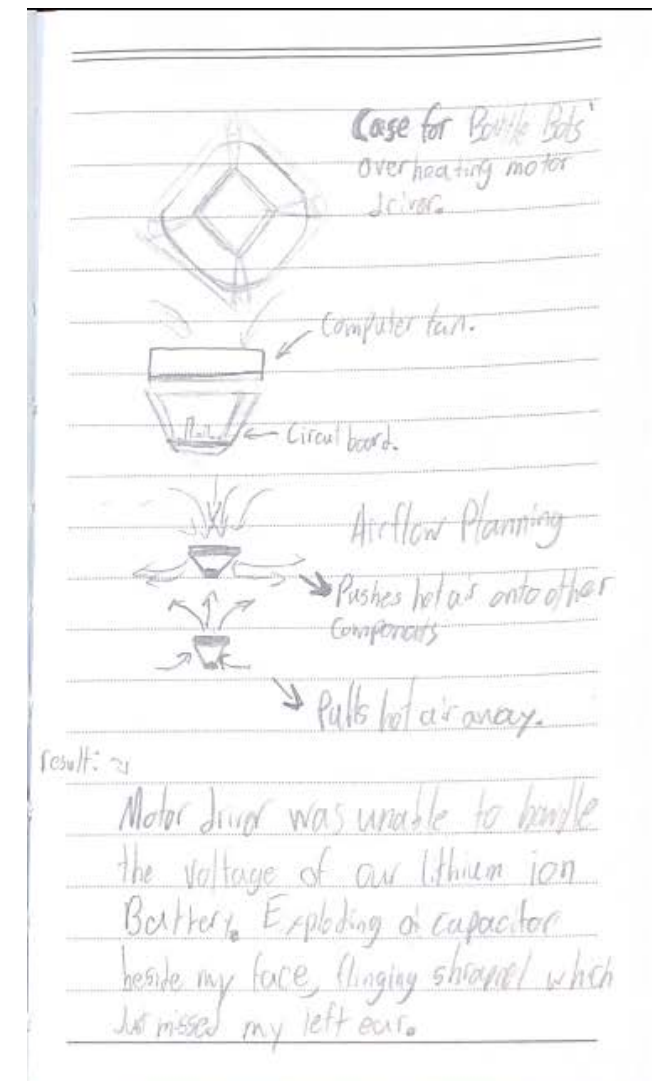 Case for Battle Bots'
overheating motor
driver.
Computer fan.
Circut board.
Airflow Planning
Pushes hot air onto other
Components
Pulls hot air away.
result:
Motor driver was unable to handle
the voltage of our lithium ion
Battery. Exploding a capacitor
beside my face, flinging shrapnel which
Just missed my left ear.